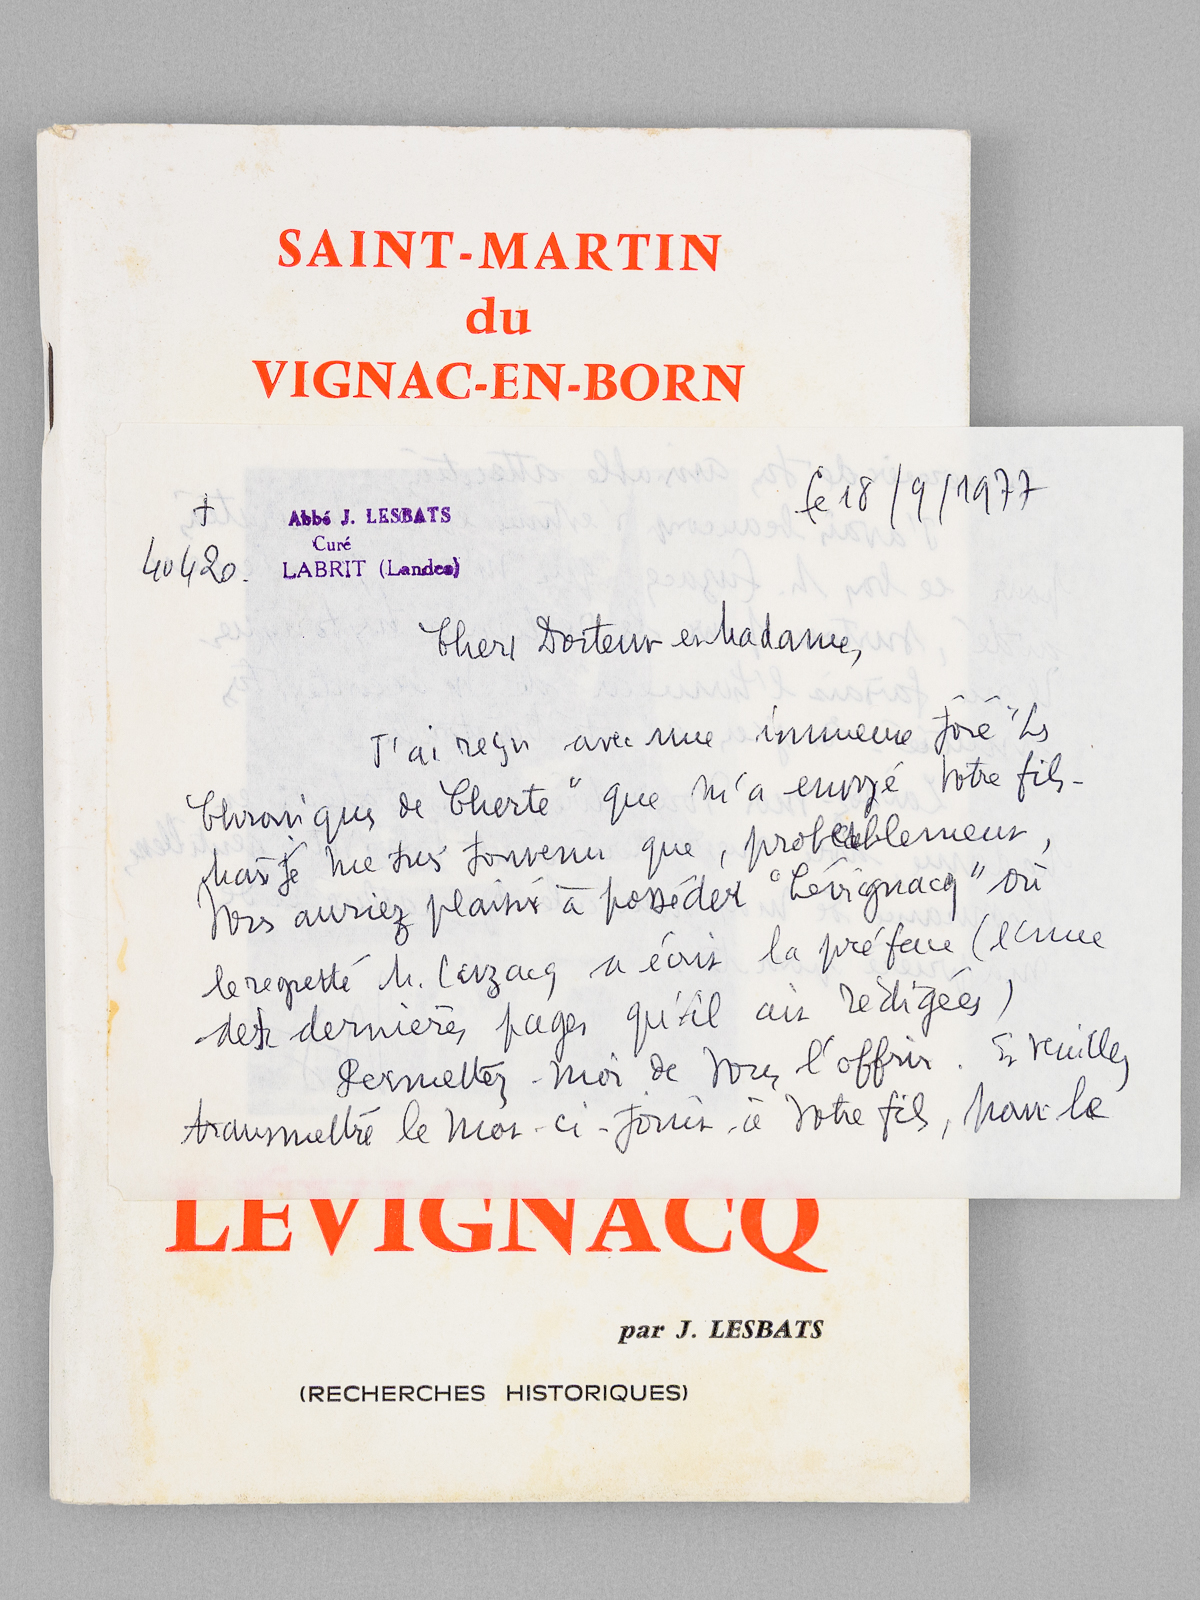 SAINT-MARTIN
du
VIGNAC-EN-BORN
le 18/9/1977
†
Abbé J. LESBATS
Curé
40420.
LABRIT (Landes)
Chers Docteur et Madame,
J'ai reçu avec une immense joie "Les
Chroniques de Cherte" que m'a envoyé votre fils -
Mais je me suis souvenu que, probablement,
vous auriez plaisir à posséder "Lévignacq" où
le regretté M. Cuzacq a écrit la préface (l'une
des dernières pages qu'il ait rédigées)
Permettez-moi de vous l'offrir. Et veuillez
transmettre le mot-ci-joint à votre fils, pour le
LÉVIGNACQ
par J. LESBATS
(RECHERCHES HISTORIQUES)